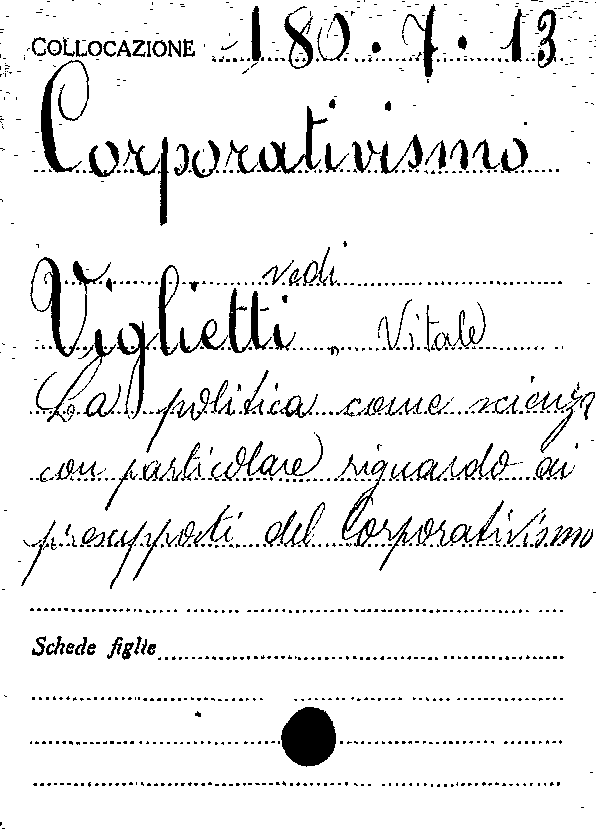 COLLOCAZIONE 180.7.13
Corporativismo
vedi
Viglietti, Vitale
La politica come scienza
con particolare riguardo ai
presupposti del Corporativismo
Schede figlie